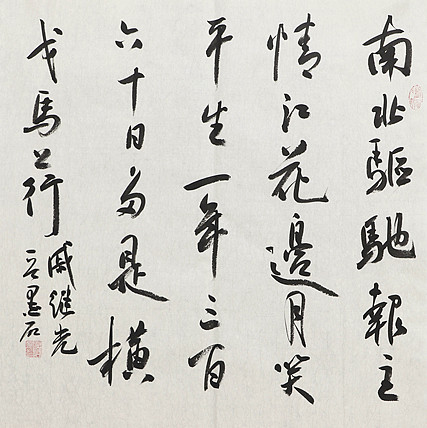 南北驅馳報主
情江花邊月笑
平生一年三百
六十日多是橫
戈馬上行
戚继光
墨石